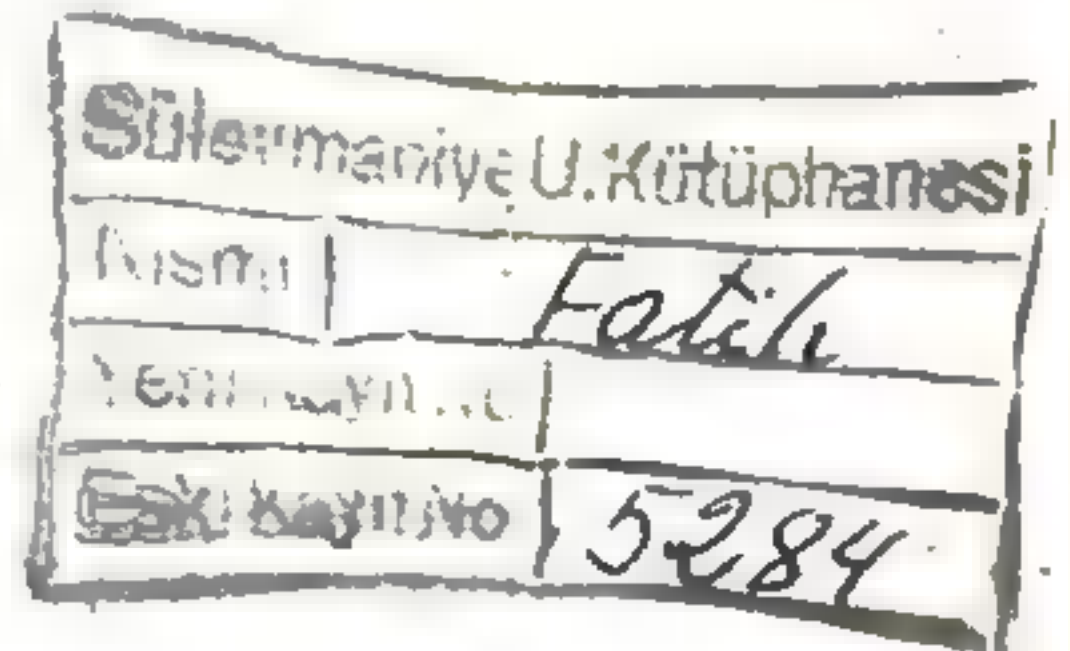 Süleymaniye U. Kütüphanesi
Kısmı Fatih
Yeni Kayıt No
Eski Kayıt No 5284